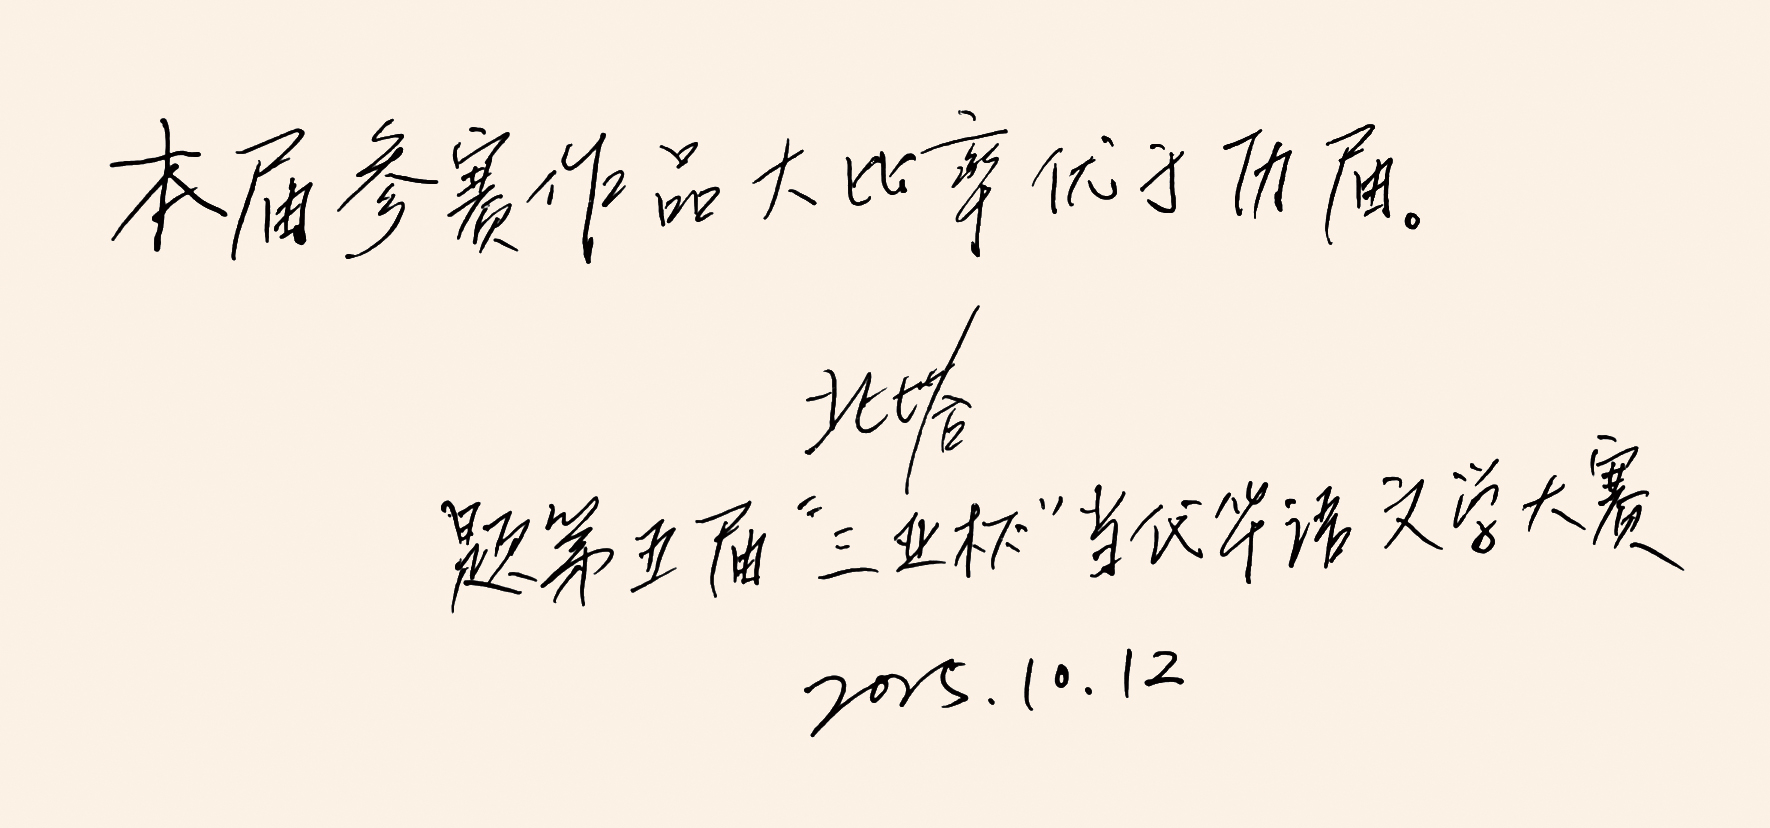 本届参赛作品大比率优于历届。
北塔
题第五届“三业杯”当代华语文学大赛
2025.10.12